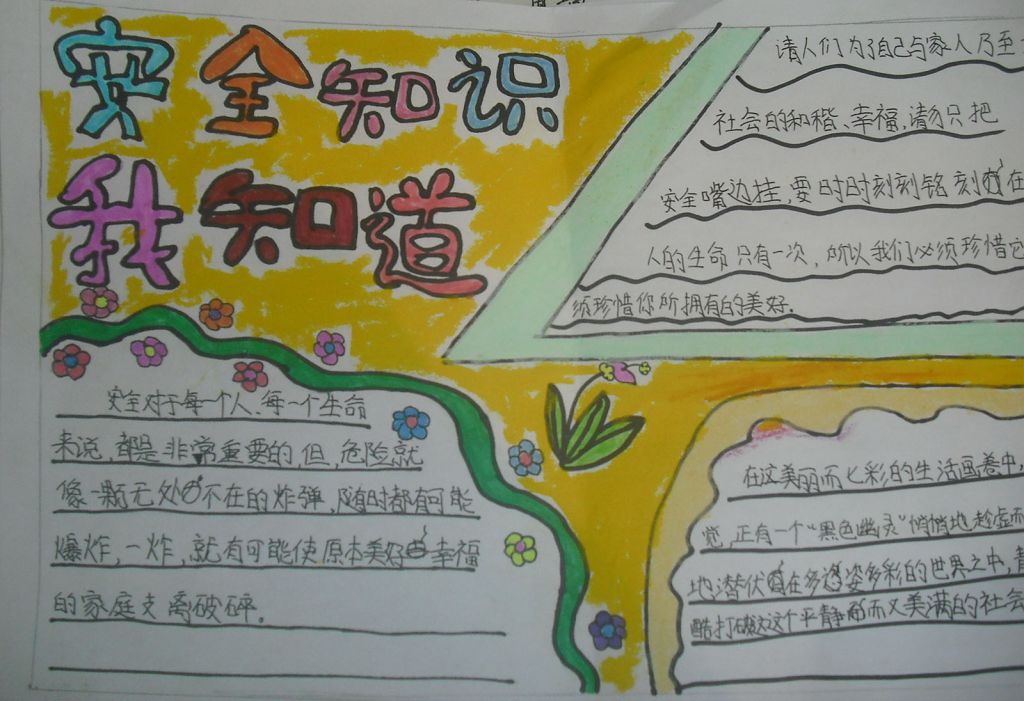 安全知识
我知道
请人们为了自己与家人乃至
社会的和稽、幸福,请勿只把
安全嘴边挂,要时时刻刻铭刻在
人的生命只有一次,所以我们必须珍惜它
须珍惜你所拥有的美好.
安全对于每一个人、每一个生命
来说,都是非常重要的,但,危险就
像一颗无处不在的炸弹,随时都有可能
爆炸,一炸,就有可能使原本美好幸福
的家庭支离破碎。
在这美丽而七彩的生活画卷中,
觉,正有一个“黑色幽灵”悄悄地趁虚而
地潜伏在多姿多彩的世界之中,
酷打破这个平静而又美满的社会